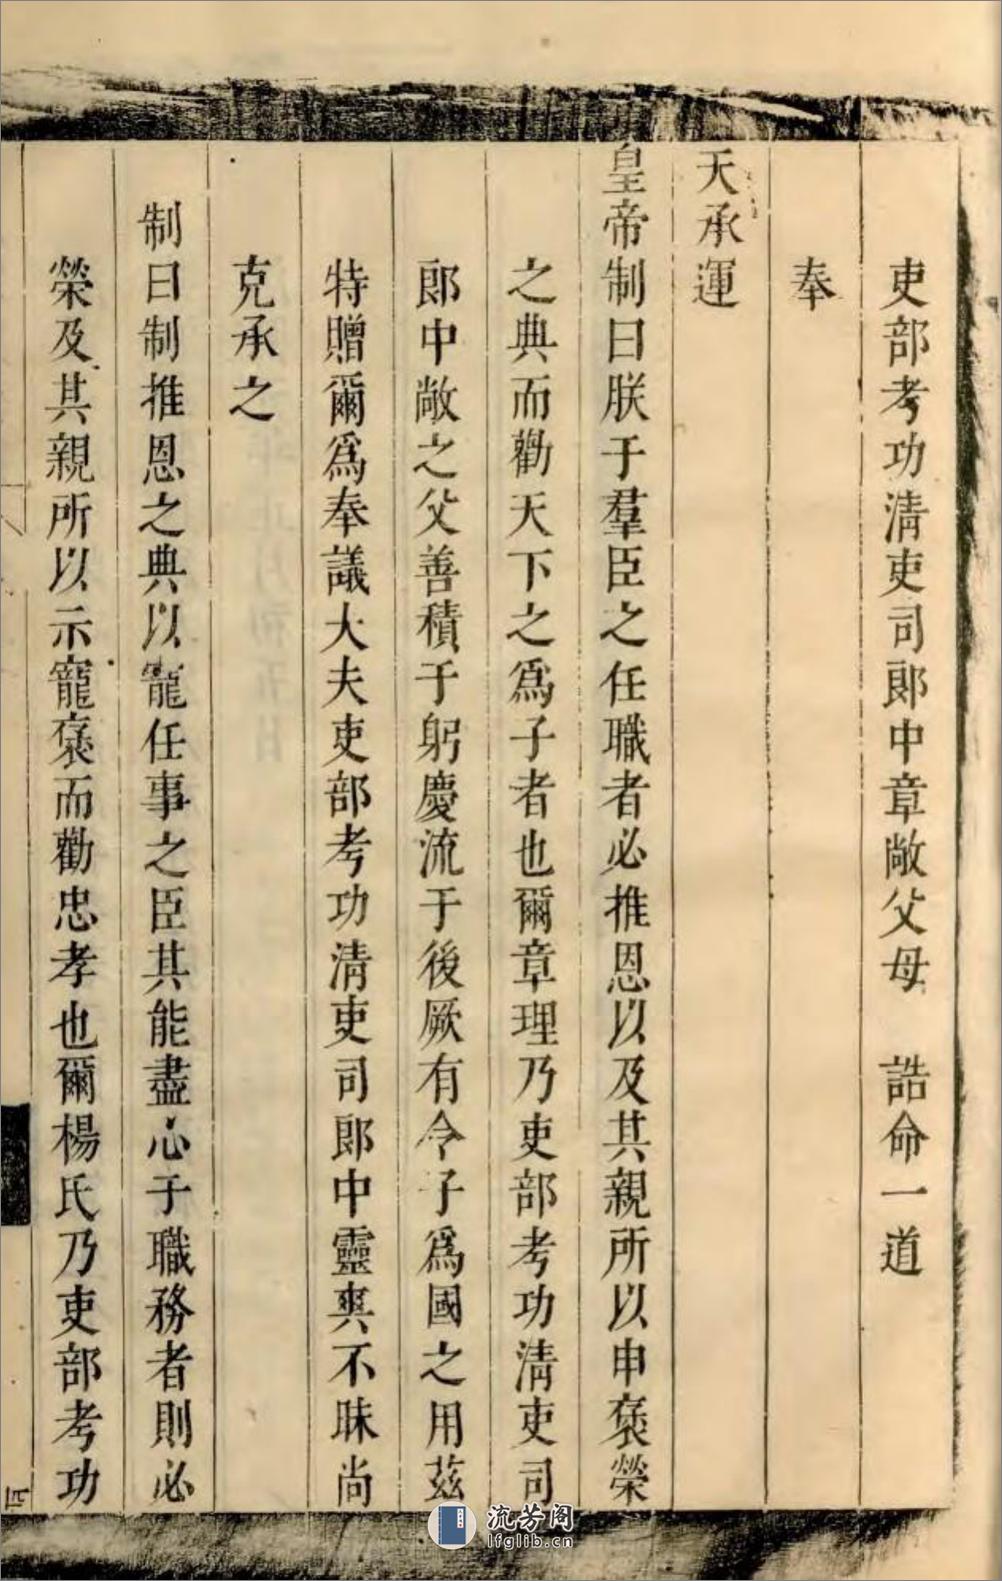 吏部考功清吏司郎中章敞父母　誥命一道
奉
天承運
皇帝制曰朕于羣臣之任職者必推恩以及其親所以申褒榮
之典而勸天下之爲子者也爾章理乃吏部考功清吏司
郎中敞之父善積于躬慶流于後厥有令子爲國之用茲
特贈爾爲奉議大夫吏部考功清吏司郎中靈爽不昧尚
克承之
制曰制推恩之典以寵任事之臣其能盡心于職務者則必
榮及其親所以示寵褒而勸忠孝也爾楊氏乃吏部考功
流芳阁
lfglib.cn